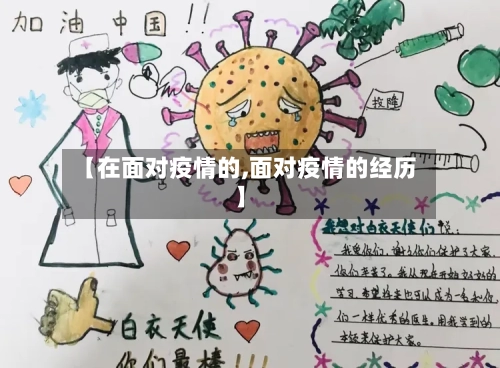 加油中国!!
投降
【在面对疫情的,面对疫情的经历
】
我想对白衣天使们说:
我爱你们,谢谢你们保护了大家,
你们辛苦了。我从现在开始好好的
学习,希望将来也可以成为一名和你
们一样优秀的医生。用我学到的
本领来保护大家。
白衣天使
你们最棒!!!